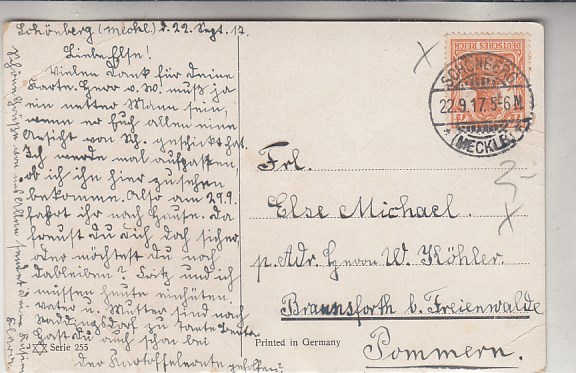 Schönberg (Meckl.) d. 22. Sept. 17.
Liebe Else!
Vielen Dank für Deine
Karte. Herr v. W. muß ja
ein netter Mann sein,
wenn er Euch allen eine
Ansicht von Sch. geschickt hat.
Ich werde mal aufpassen,
ob ich ihn hier zu sehen
bekomme. Also am 29.9.
fahrt ihr nach Hause. Da
freust Du Dich doch sicher,
oder möchtest Du noch
dableiben? Fritz und ich
müssen heute einhüten.
Vater u. Mutter sind nach
zu Tante
Hast Du auch schon bei
der Kartoffelernte geholfen?
Serie 255
Printed in Germany
DEUTSCHES REICH
SCHÖNBERG
22.9.17. 5-6 N.
(MECKLB)
Frl.
Else Michael.
p. Adr. Herrn W. Köhler
Braunsforth b. Freienwalde
Pommern.